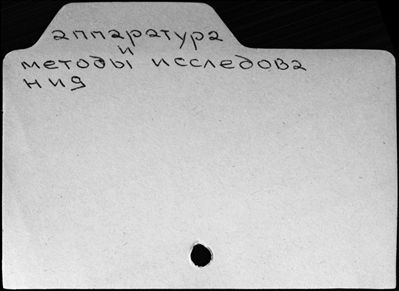 аппаратура
и
методы исследова
ния